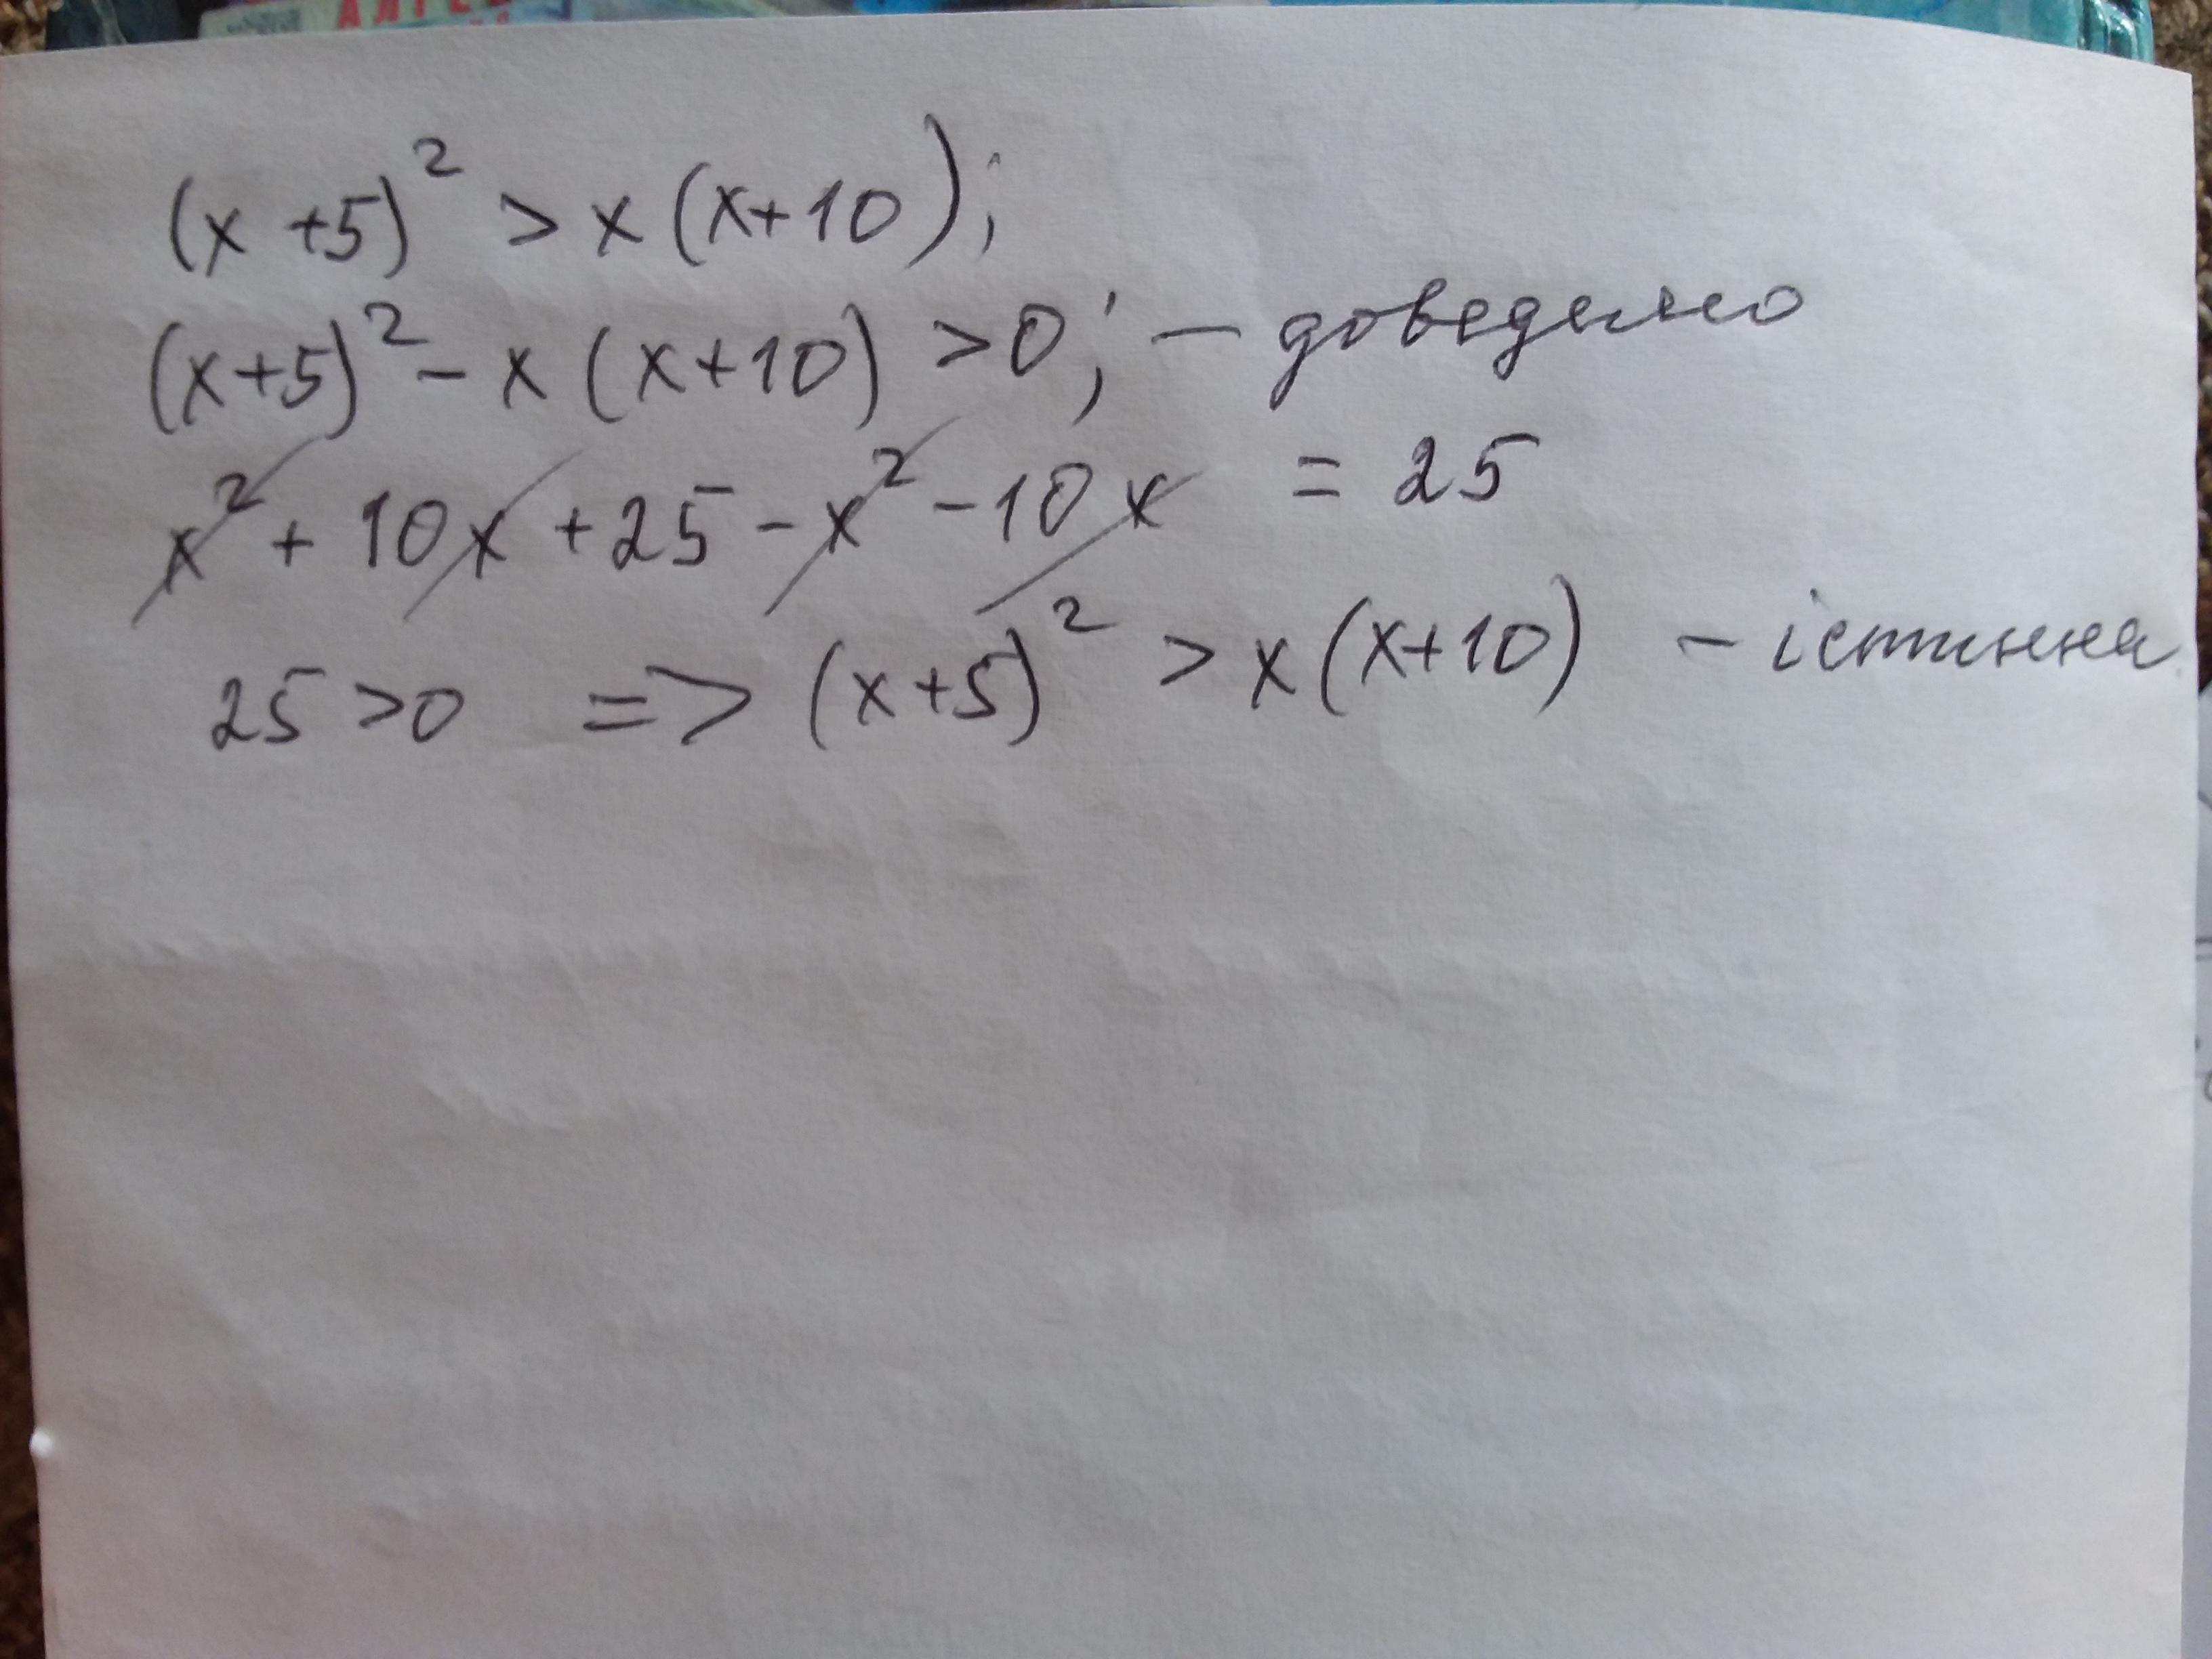 (x+5)² > x(x+10);
(x+5)² - x(x+10) > 0; - доведемо
x² + 10x + 25 - x² - 10x = 25
25 > 0 => (x+5)² > x(x+10) - істинна